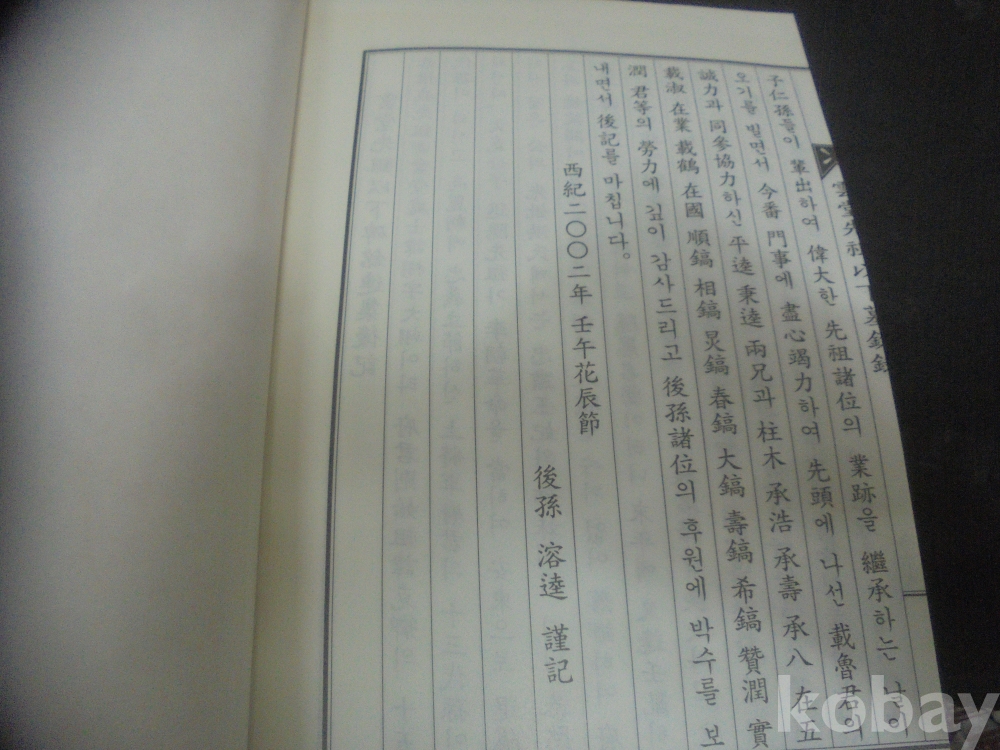 雲堂先祖以下墓
子仁孫들이 輩出하여 偉大한 先祖諸位의 業跡을 繼承하는 날이
오기를 빌면서 今番 門事에 盡心竭力하여 先頭에 나선 載魯君의
誠力과 同參協力하신 平逵 秉逵 兩兄과 柱木 承浩 承壽 承八 在五
載淑 在業 載鶴 在國 順鎬 相鎬 炅鎬 春鎬 大鎬 壽鎬 希鎬 贊潤 實
潤 君等의 勞力에 깊이 감사드리고 後孫諸位의 후원에 박수를 보
내면서 後記를 마칩니다。
西紀二〇〇二年 壬午花辰節
後孫 溶逵 謹記
kobay